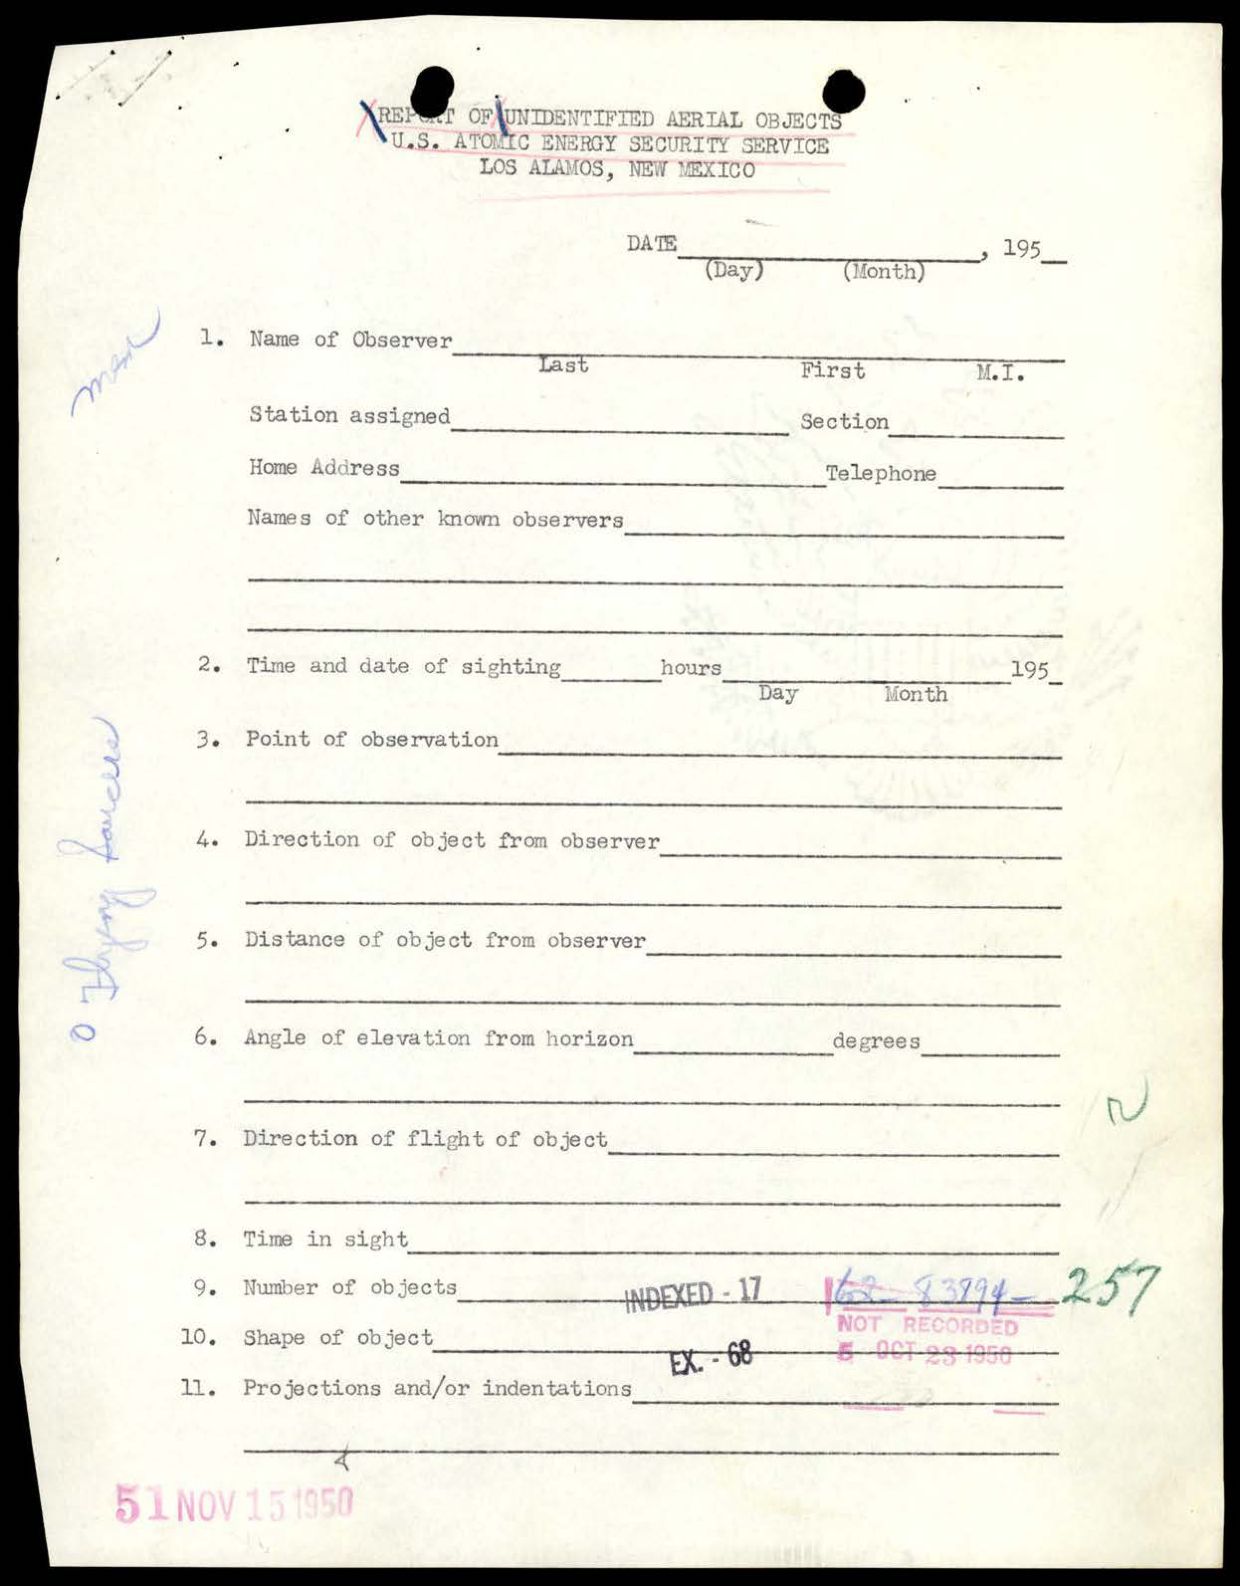 REPORT OF UNIDENTIFIED AERIAL OBJECTS
U.S. ATOMIC ENERGY SECURITY SERVICE
LOS ALAMOS, NEW MEXICO
DATE____________________, 195__
(Day) (Month)
1. Name of Observer____________________
Last First M.I.
Station assigned____________________ Section__________
Home Address____________________Telephone__________
Names of other known observers____________________
2. Time and date of sighting______hours____________________195_
Day Month
3. Point of observation____________________
4. Direction of object from observer____________________
5. Distance of object from observer____________________
6. Angle of elevation from horizon__________degrees__________
7. Direction of flight of object____________________
8. Time in sight____________________
9. Number of objects____________________
INDEXED - 17 62-83894-257
NOT RECORDED
10. Shape of object____________________
EX. - 68 5 OCT 23 1950
11. Projections and/or indentations____________________
51 NOV 15 1950
Flying Saucer